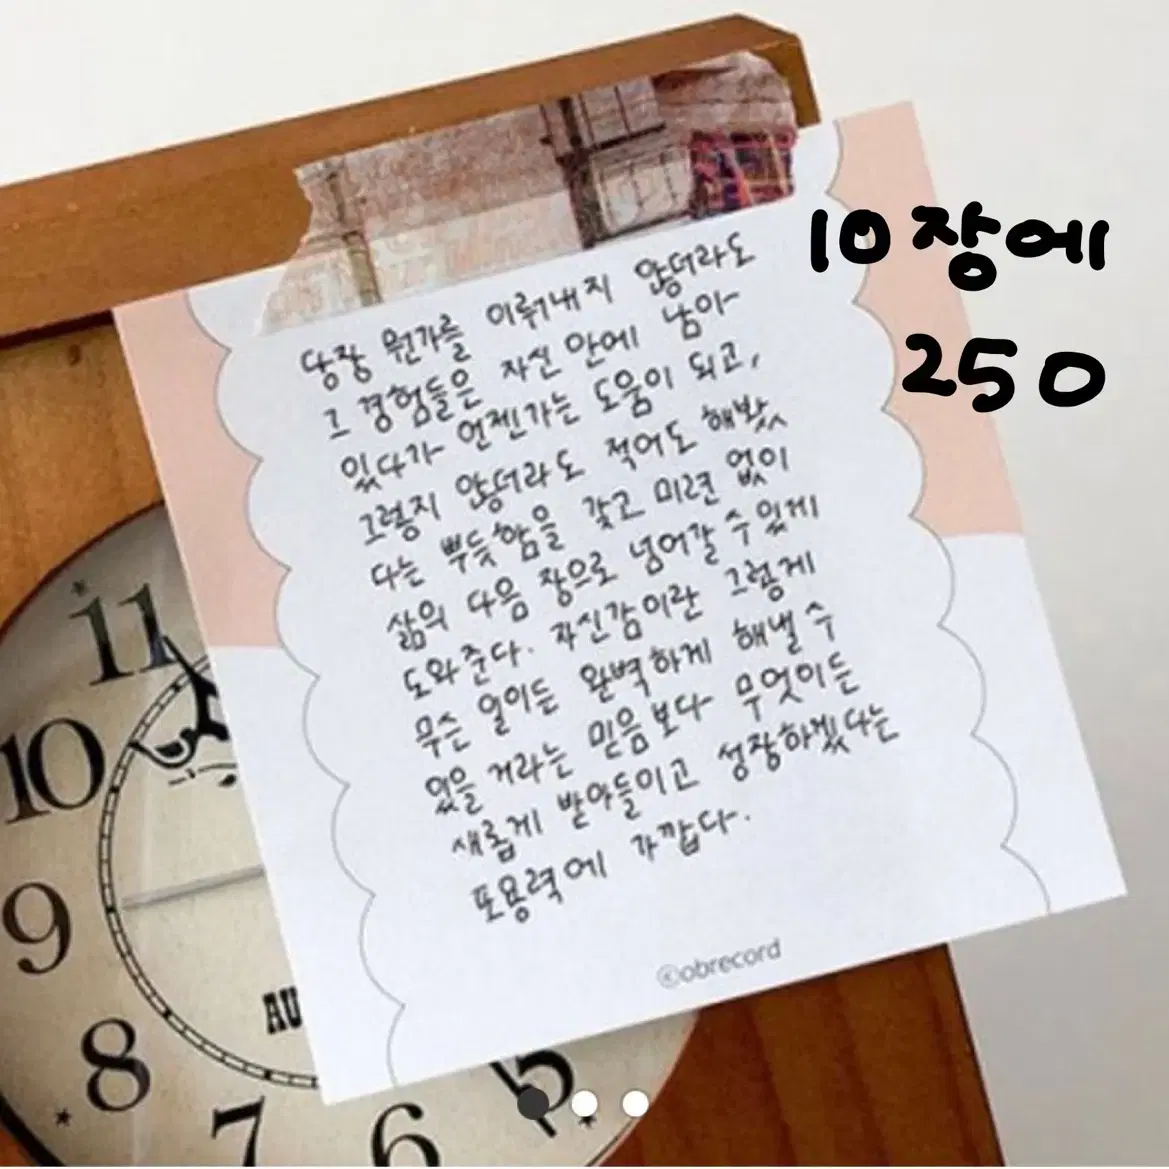 10장에
250
당장 뭔가를 이뤄내지 않더라도
그 경험들은 자신 안에 남아
있다가 언젠가는 도움이 되고,
그렇지 않더라도 적어도 해봤
다는 뿌듯함을 갖고 미련 없이
삶의 다음 장으로 넘어갈 수 있게
도와준다. 자신감이란 그렇게
무슨 일이든 완벽하게 해낼 수
있을 거라는 믿음보다 무엇이든
새롭게 받아들이고 성장하겠다는
포용력에 가깝다.
©obrecord
11
10
9
8
7
6
5
AU